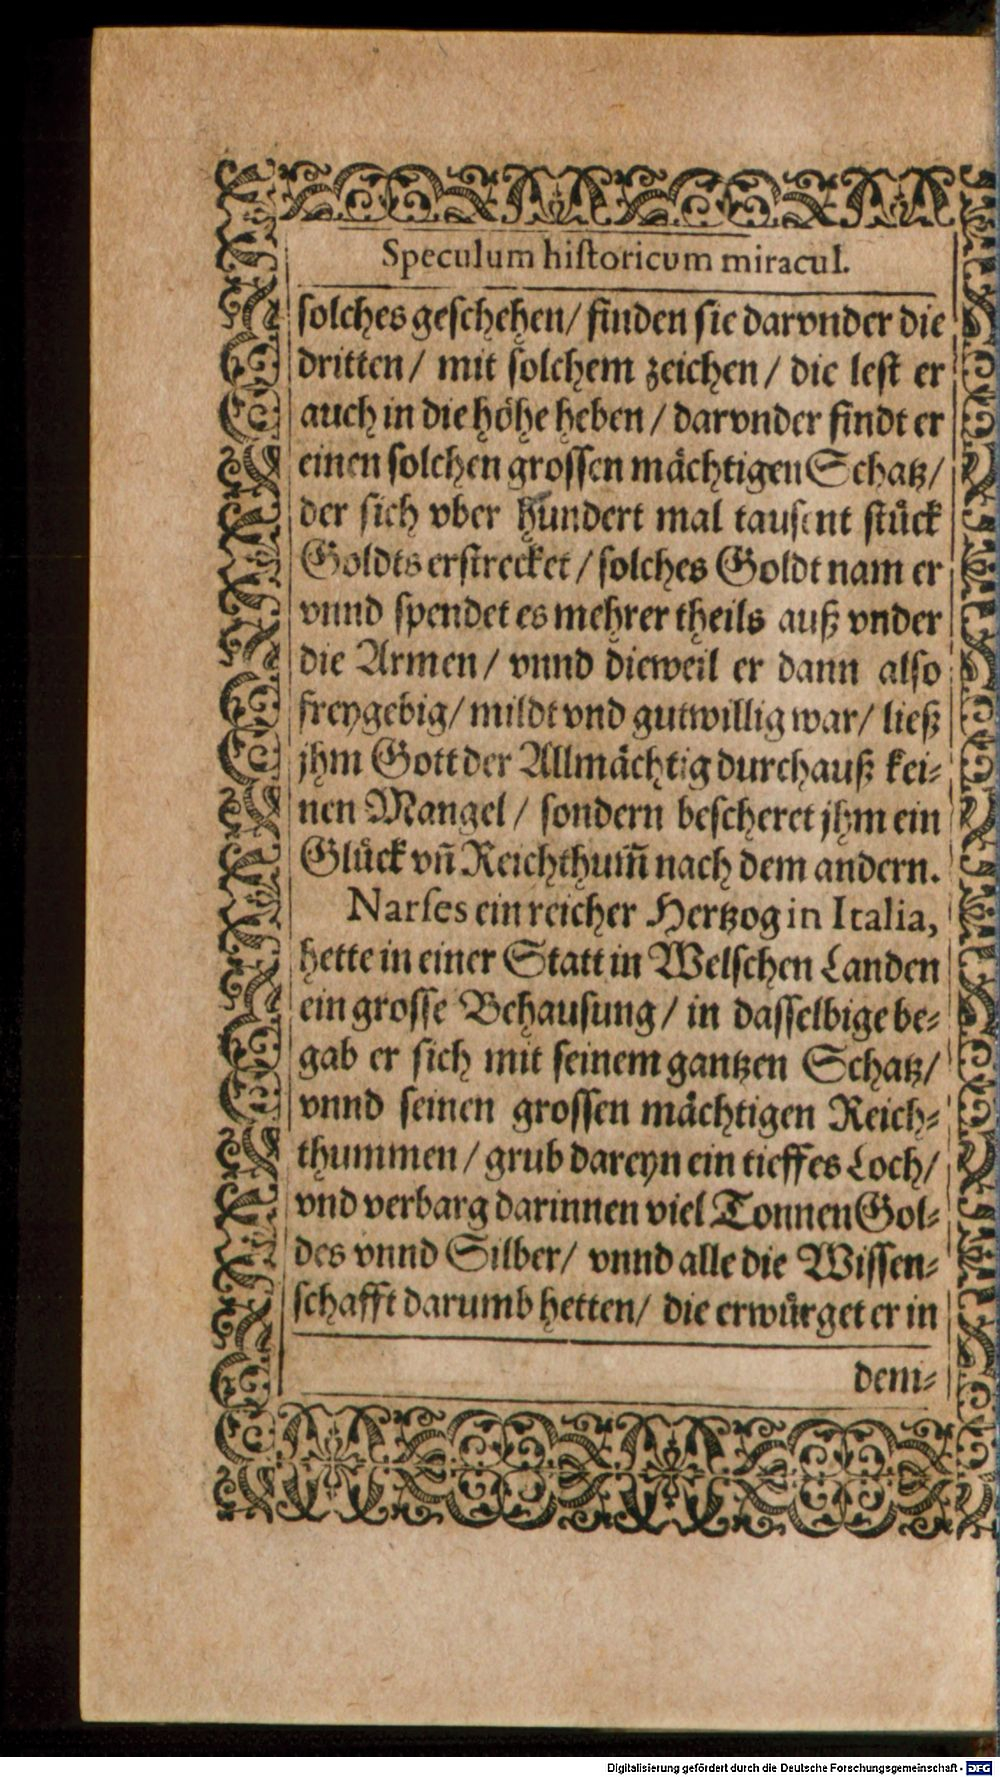 Speculum historicum miracul.
solches geschehen/ finden sie darvnder die
dritten/ mit solchem zeichen/ die lest er
auch in die höhe heben/ darvnder findt er
einen solchen grossen mächtigen Schatz/
der sich vber hundert mal tausent stück
Goldts erstrecket/ solches Goldt nam er
vnnd spendet es mehrer theils auß vnder
die Armen/ vnnd dieweil er dann also
freygebig/ mildt vnd gutwillig war/ ließ
jhm Gott der Allmächtig durchauß kei-
nen Mangel/ sondern bescheret jhm ein
Glück vñ Reichthum̃ nach dem andern.
Narses ein reicher Hertzog in Italia,
hette in einer Statt in Welschen Landen
ein grosse Behausung/ in dasselbige be-
gab er sich mit seinem gantzen Schatz/
vnnd seinen grossen mächtigen Reich-
thummen/ grub dareyn ein tieffes Loch/
vnd verbarg darinnen viel Tonnen Gol-
des vnnd Silber/ vnnd alle die Wissen-
schafft darumb hetten/ die erwürget er in
dem-
Digitalisierung gefördert durch die Deutsche Forschungsgemeinschaft - DFG